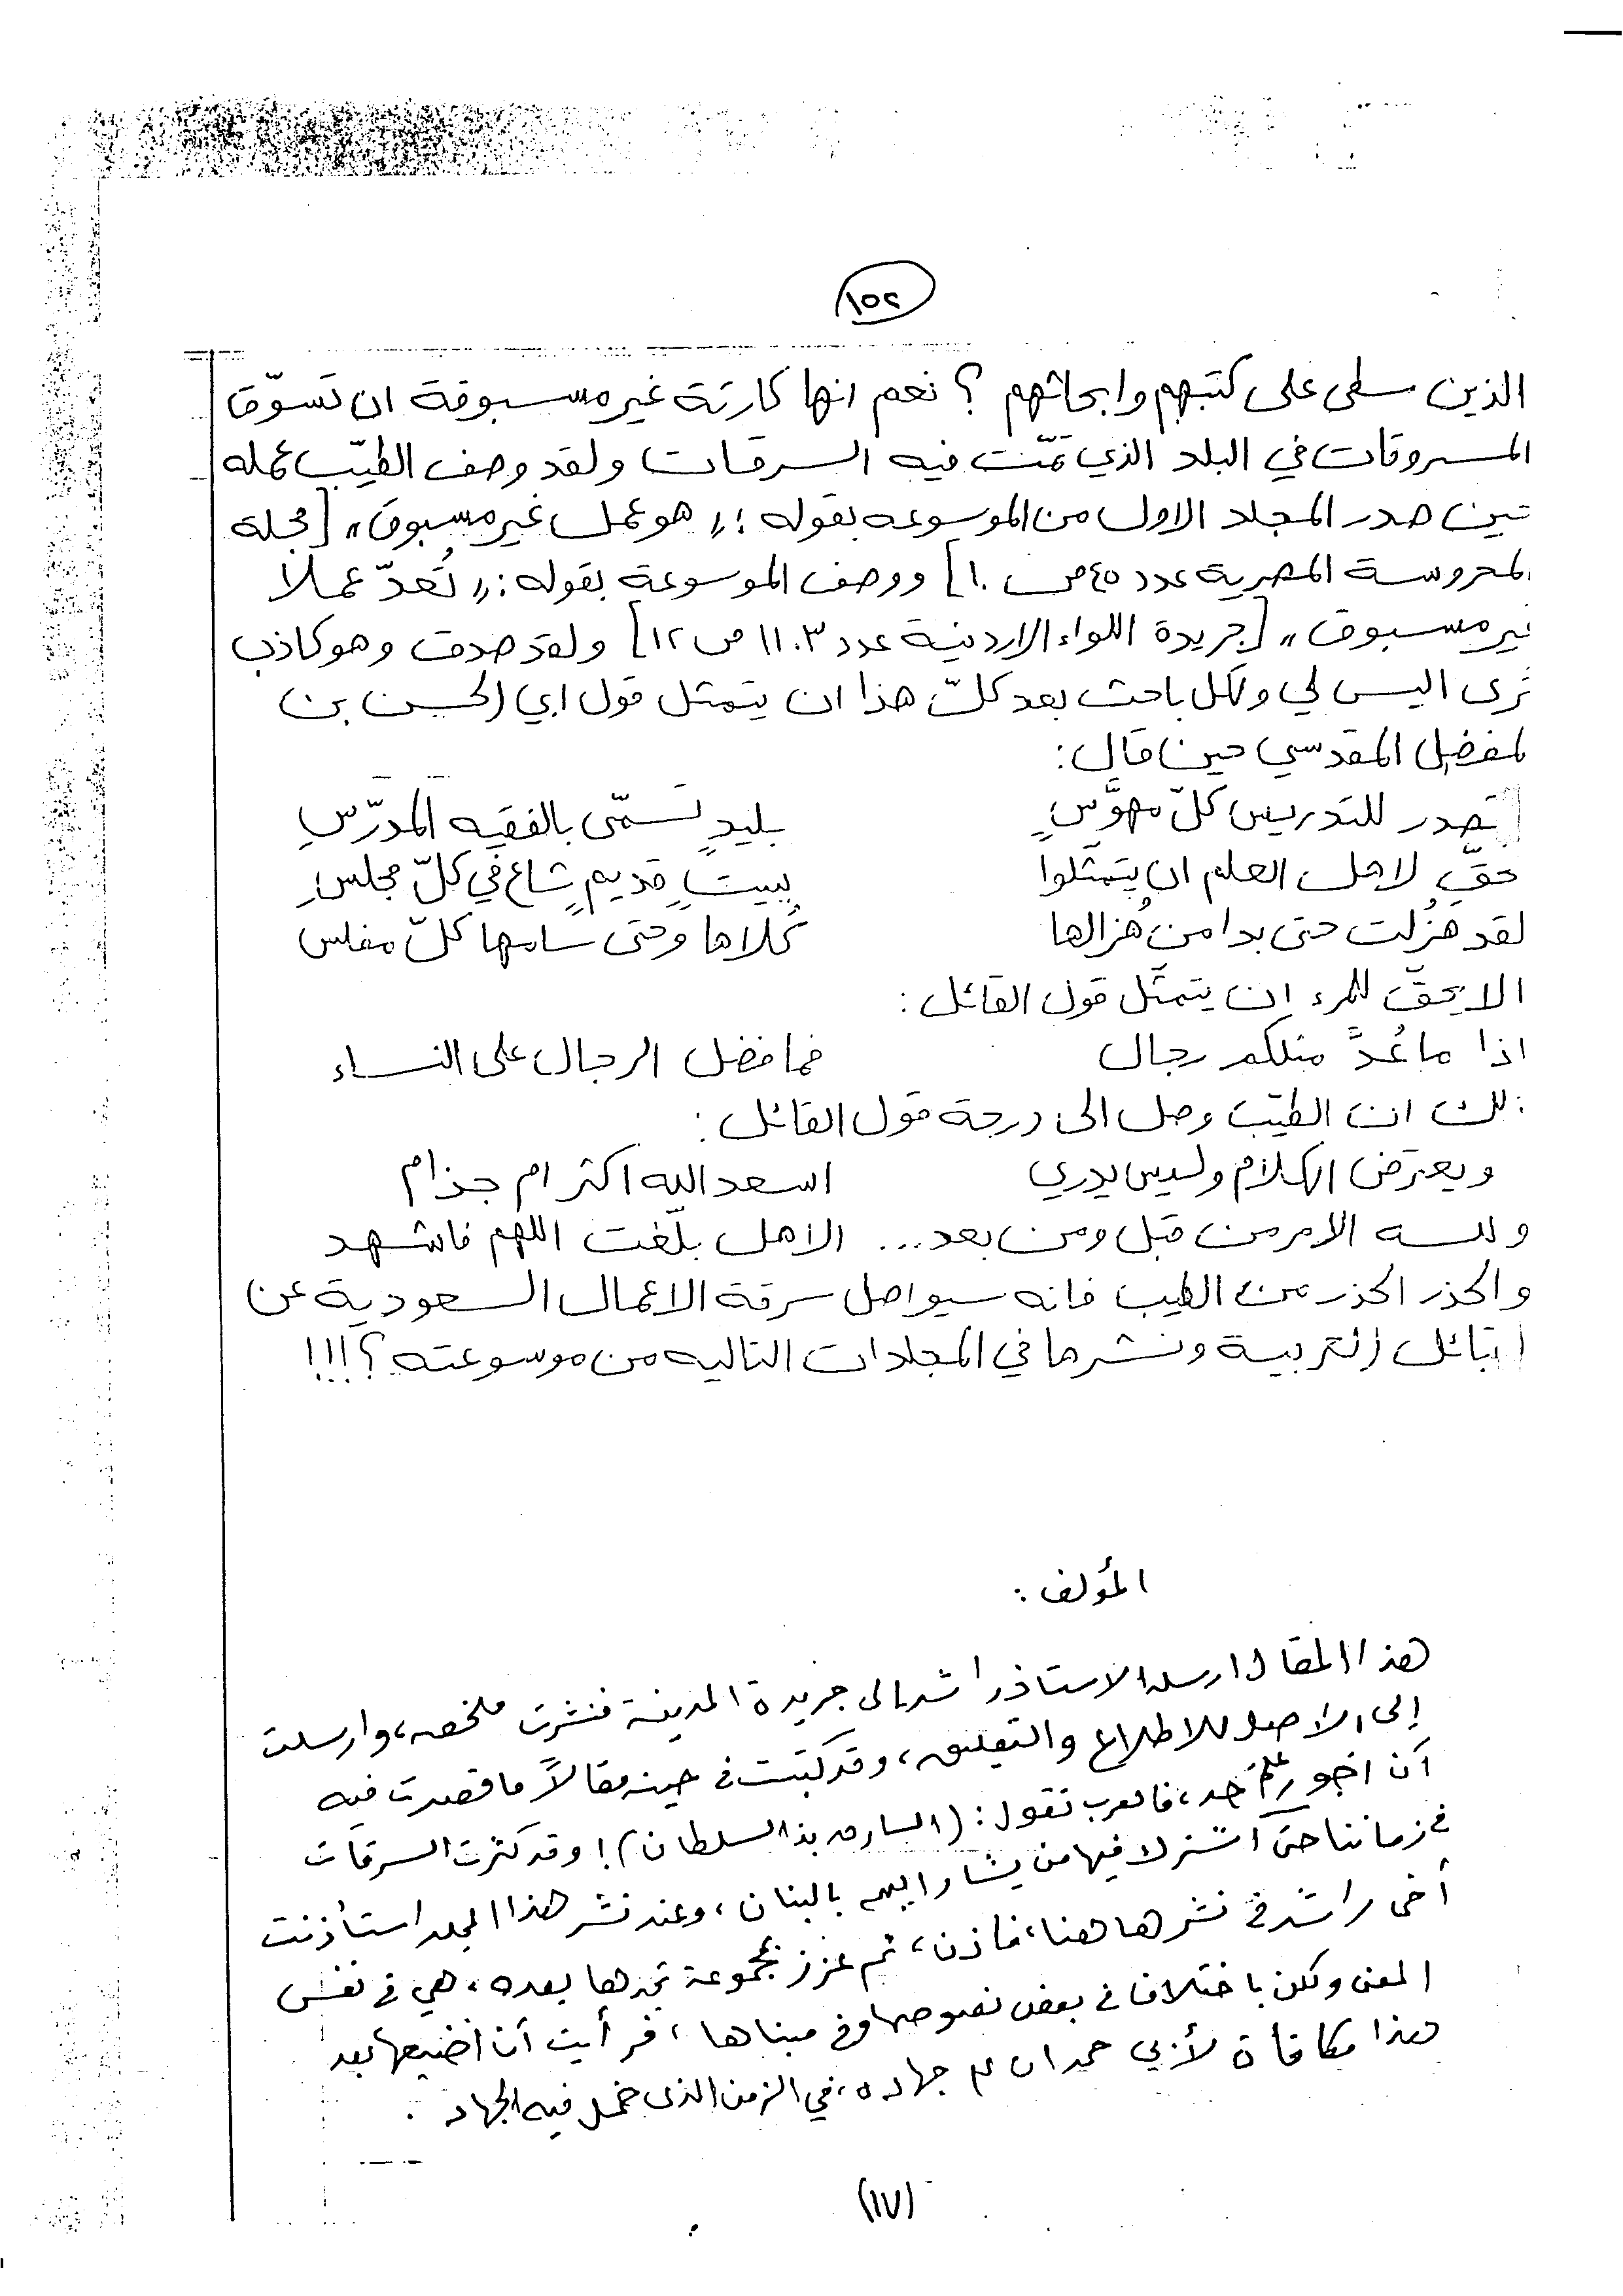 ١٥٢
الذين سطى على كتبهم وابحاثهم ؟ نعم انها كارثة غير مسبوقة ان تسوّق
المسروقات في البلد الذي تمّت فيه السرقات ولقد وصف الطيّب عمله
حين صدر المجلد الاول من الموسوعه بقوله : " هو عمل غير مسبوق " [ مجلة
المحروسة المصرية عدد ٤٥ ص ١٠ ] ووصف الموسوعة بقوله : " تُعدّ عملا
غير مسبوق " [ جريدة اللواء الاردنية عدد ١١٠٣ ص ١٢ ] ولقد صدق وهو كاذب
تُرى اليس لي ولكل باحث بعد كلّ هذا ان يتمثل قول ابي الحسن بن
المفضل المقدسي حين قال :
تصدر للتدريس كلّ مهوَّسٍ بليدٍ تسمّى بالفقيه المدرّسِ
حقّ لاهل العلم ان يتمثلوا ببيتٍ قديمٍ شاع في كلّ مجلسِ
لقد هزُلت حتى بدا من هُزالها كُلاها وحتى سامها كلّ مفلس
الا يحقّ للمرء ان يتمثّل قول القائل :
اذا ما عُدَّ مثلكم رجال فما فضل الرجال على النساء
ذلك ان الطيّب وصل الى درجة قول القائل :
ويعترض الكلام وليس يدري اسعد الله اكثر ام جذام
ولله الامر من قبل ومن بعد ... الا هل بلّغت اللهم فاشهد
والحذر الحذر من الطيب فانه سيواصل سرقة الاعمال السعودية عن
القبائل العربية ونشرها في المجلدات التاليه من موسوعته ؟!!!
المؤلف :
هذا المقال ارسله الاستاذ راشد الى جريدة المدينة فنشرت ملخصه، وارسلت
إلى الاصل للاطلاع والتعليق، وقد كتبت في حينه مقالاً ما قصدت فيه
أن اجور على أحد، فالعرب تقول : (السارق بذ السلطان)! وقد كثرت السرقات
في زماننا حتى انزلا فيها من يشار إليهم بالبنان، وعند نشر هذا المجلد استأذنت
أخي راشد في نشرها هنا، فأذن، ثم عزز بمجموعة تجدها بعده، هي في نفس
المعنى ولكن باختلاف في بعض نصوصها وفي مبناها، فرأيت أن اضيعها بعد
هذا مكافأة لأبي حمدان جهاده، في الزمن الذى خمل فيه الجهاد .
(١٧)